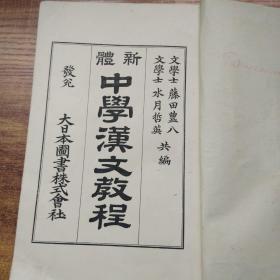 文學士 藤田豐八
文學士 水月哲英 共編
新體
中學漢文教程
發兌 大日本圖書株式會社